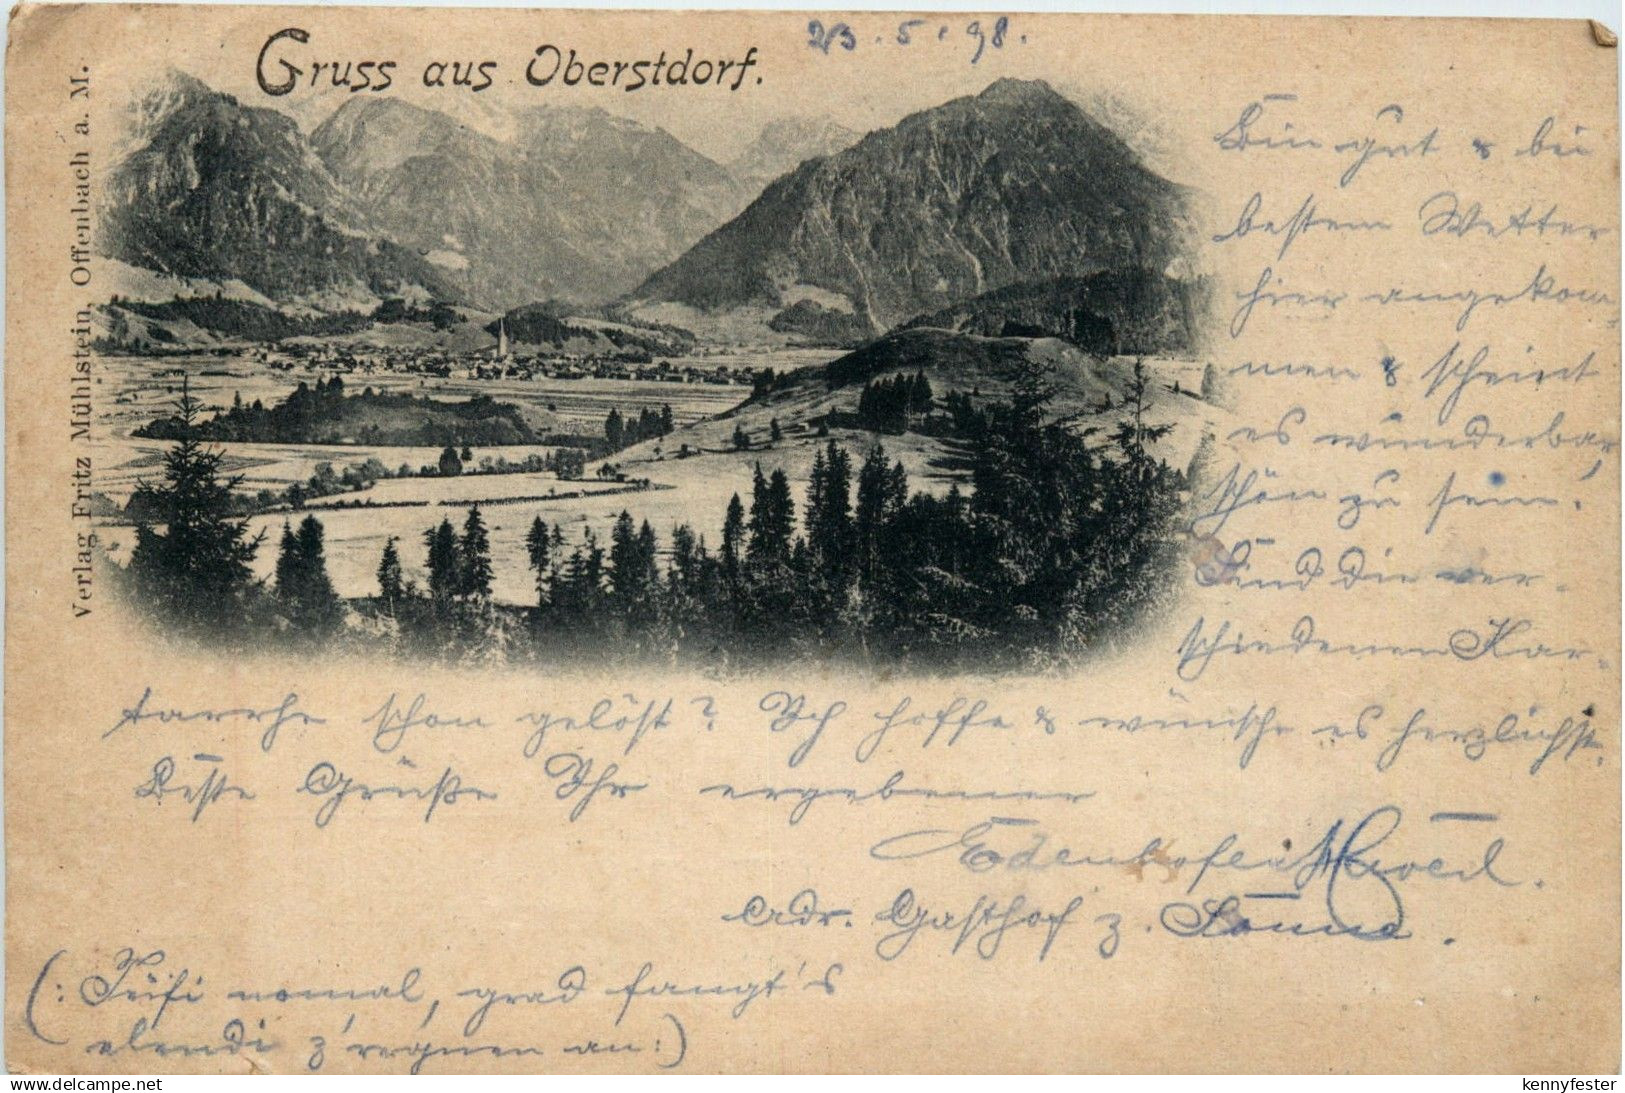 Gruss aus Oberstdorf.
23.5.98.
Verlag Fritz Mühlstein, Offenbach a. M.
Bin gut & bei
bestem Wetter
hier angekom-
men & scheint
es wunderbar
schön zu sein!
Sind die ver-
schiedenen Kar-
tarrhe schon gelöst? Ich hoffe & wünsche es herzlichst.
Beste Grüße Ihr ergebener
Edenhofer
Adr. Gasthof z. Sonne.
(: nomal, grad fangt's
elendi z'regnen an:)
kennyfester